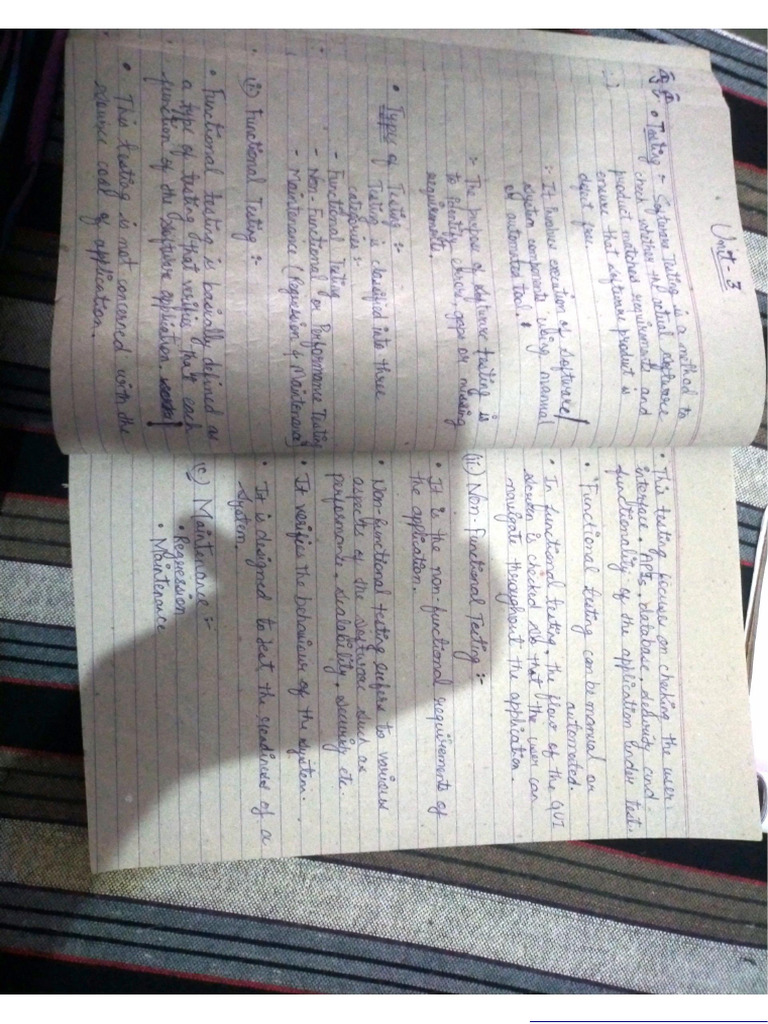 Unit - 3
• Testing :- Software Testing is a method to
check whether the actual software
product matches requirements and
ensure that software product is
defect free.
:- It involve execution of software/
system components using manual
or automated tool.
:- The purpose of software testing is
to identify errors, gaps or missing
requirements.
• Types of Testing :-
Testing is classified into three
categories :-
- Functional Testing
- Non-Functional or Performance Testing
- Maintenance (Regression & Maintenance)
(i) Functional Testing :-
• Functional testing is basically defined as
a type of testing that verifies that each
function of the software application works/
• This testing is not concerned with the
source cod of application.
• This testing focuses on checking the user
interface, APIs, database, security and
functionality of the application under test.
• Functional testing can be manual or
automated.
• In functional testing, the flow of the GUI
screen is checked so that the user can
navigate throughout the application.
(ii) Non-Functional Testing :-
• It is the non-functional requirements of
the application.
• Non-functional testing refers to various
aspects of the software such as
performance, scalability, security etc.
• It verifies the behaviour of the system.
• It is designed to test the readiness of a
system.
(C) Maintenance :-
• Regression
• Maintenance